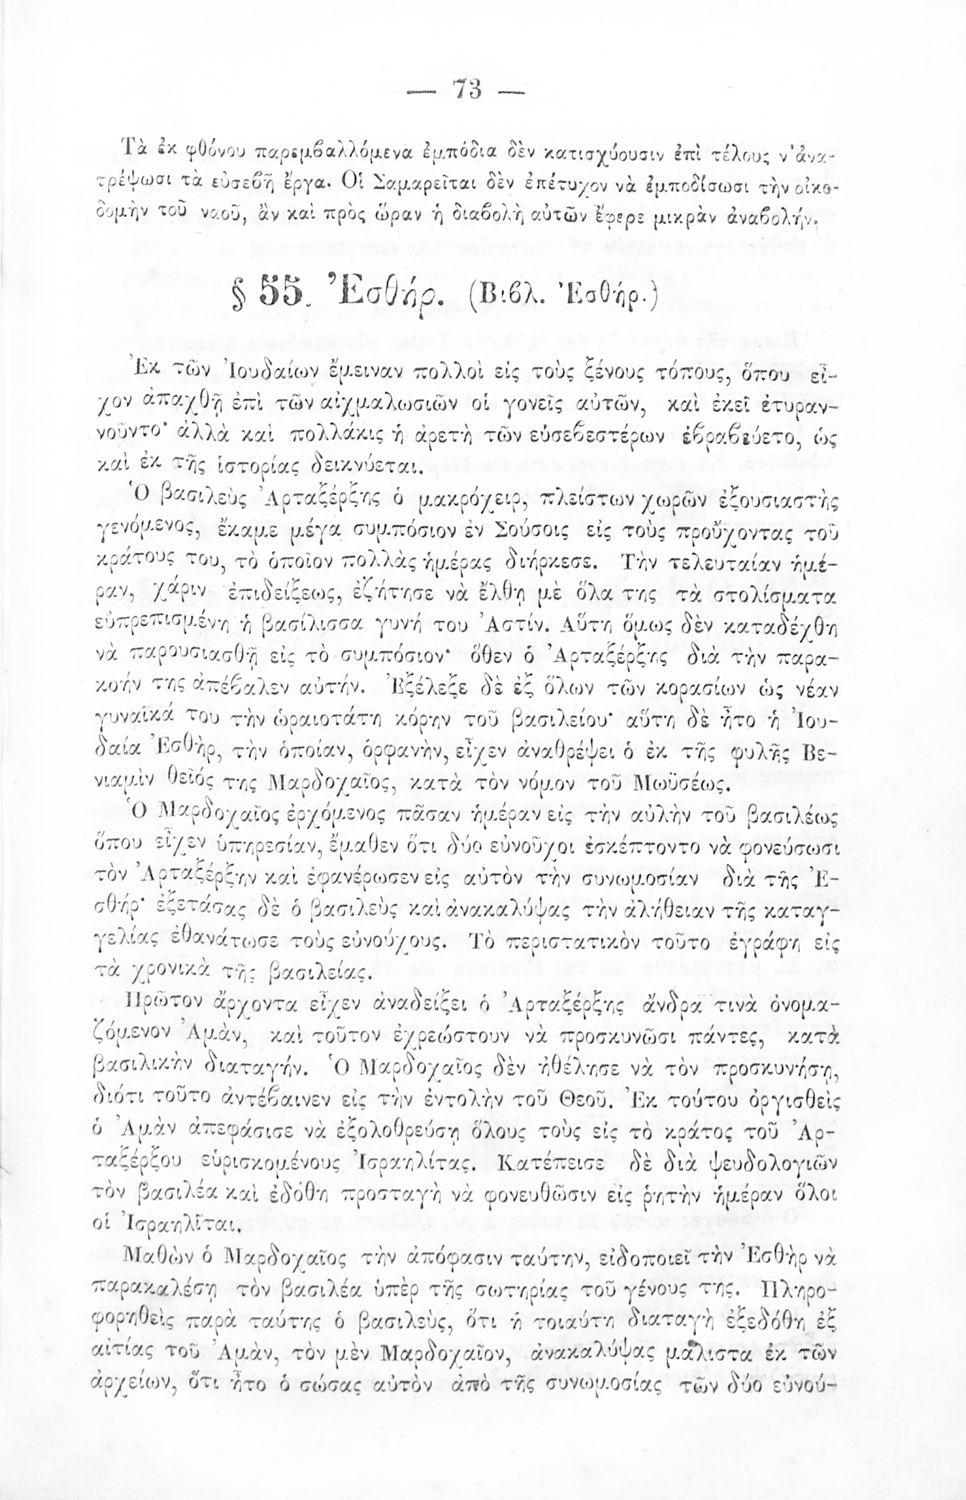 — 73 —
Τὰ ἐκ φθόνου παρεμβαλλόμενα ἐμπόδια δὲν κατισχύουσιν ἐπὶ τέλους ν' ἀνα-
τρέψωσι τὰ εὐσεβῆ ἔργα. Οἱ Σαμαρεῖται δὲν ἐπέτυχον νὰ ἐμποδίσωσι τὴν οἰκο-
δομὴν τοῦ ναοῦ, ἂν καὶ πρὸς ὥραν ἡ διαβολὴ αὐτῶν ἔφερε μικρὰν ἀναβολήν.
§ 55. Ἐσθήρ. (Βιβλ. Ἐσθήρ.)
Ἐκ τῶν Ἰουδαίων ἔμειναν πολλοὶ εἰς τοὺς ξένους τόπους, ὅπου εἶ-
χον ἀπαχθῆ ἐπὶ τῶν αἰχμαλωσιῶν οἱ γονεῖς αὐτῶν, καὶ ἐκεῖ ἐτυραν-
νοῦντο· ἀλλὰ καὶ πολλάκις ἡ ἀρετὴ τῶν εὐσεβεστέρων ἐβραβεύετο, ὡς
καὶ ἐκ τῆς ἱστορίας δεικνύεται.
Ὁ βασιλεὺς Ἀρταξέρξης ὁ μακρόχειρ, πλείστων χωρῶν ἐξουσιαστὴς
γενόμενος, ἔκαμε μέγα συμπόσιον ἐν Σούσοις εἰς τοὺς προὔχοντας τοῦ
κράτους του, τὸ ὁποῖον πολλὰς ἡμέρας διήρκεσε. Τὴν τελευταίαν ἡμέ-
ραν, χάριν ἐπιδείξεως, ἐζήτησε νὰ ἔλθῃ μὲ ὅλα της τὰ στολίσματα
εὐπρεπισμένη ἡ βασίλισσα γυνή του Ἀστίν. Αὕτη ὅμως δὲν καταδέχθη
νὰ παρουσιασθῇ εἰς τὸ συμπόσιον· ὅθεν ὁ Ἀρταξέρξης διὰ τὴν παρα-
κοήν της ἀπέβαλεν αὐτήν. Ἐξέλεξε δὲ ἐξ ὅλων τῶν κορασίων ὡς νέαν
γυναῖκά του τὴν ὡραιοτάτη κόρην τοῦ βασιλείου· αὕτη δὲ ἦτο ἡ Ἰου-
δαία Ἐσθὴρ, τὴν ὁποίαν, ὀρφανὴν, εἶχεν ἀναθρέψει ὁ ἐκ τῆς φυλῆς Βε-
νιαμὶν θεῖός της Μαρδοχαῖος, κατὰ τὸν νόμον τοῦ Μωϋσέως.
Ὁ Μαρδοχαῖος ἐρχόμενος πᾶσαν ἡμέραν εἰς τὴν αὐλὴν τοῦ βασιλέως
ὅπου εἶχεν ὑπηρεσίαν, ἔμαθεν ὅτι δύο εὐνοῦχοι ἐσκέπτοντο νὰ φονεύσωσι
τὸν Ἀρταξέρξην καὶ ἐφανέρωσεν εἰς αὐτὸν τὴν συνωμοσίαν διὰ τῆς Ἐ-
σθήρ· ἐξετάσας δὲ ὁ βασιλεὺς καὶ ἀνακαλύψας τὴν ἀλήθειαν τῆς καταγ-
γελίας ἐθανάτωσε τοὺς εὐνούχους. Τὸ περιστατικὸν τοῦτο ἐγράφη εἰς
τὰ χρονικὰ τῆς βασιλείας.
Πρῶτον ἄρχοντα εἶχεν ἀναδείξει ὁ Ἀρταξέρξης ἄνδρα τινὰ ὀνομα-
ζόμενον Ἀμὰν, καὶ τοῦτον ἐχρεώστουν νὰ προσκυνῶσι πάντες, κατὰ
βασιλικὴν διαταγήν. Ὁ Μαρδοχαῖος δὲν ἠθέλησε νὰ τὸν προσκυνήσῃ,
διότι τοῦτο ἀντέβαινεν εἰς τὴν ἐντολὴν τοῦ Θεοῦ. Ἐκ τούτου ὀργισθεὶς
ὁ Ἀμὰν ἀπεφάσισε νὰ ἐξολοθρεύσῃ ὅλους τοὺς εἰς τὸ κράτος τοῦ Ἀρ-
ταξέρξου εὑρισκομένους Ἰσραηλίτας. Κατέπεισε δὲ διὰ ψευδολογιῶν
τὸν βασιλέα καὶ ἐδόθη προσταγὴ νὰ φονευθῶσιν εἰς ῥητὴν ἡμέραν ὅλοι
οἱ Ἰσραηλῖται.
Μαθὼν ὁ Μαρδοχαῖος τὴν ἀπόφασιν ταύτην, εἰδοποιεῖ τὴν Ἐσθὴρ νὰ
παρακαλέσῃ τὸν βασιλέα ὑπὲρ τῆς σωτηρίας τοῦ γένους της. Πληρο-
φορηθεὶς παρὰ ταύτης ὁ βασιλεὺς, ὅτι ἡ τοιαύτη διαταγὴ ἐξεδόθη ἐξ
αἰτίας τοῦ Ἀμὰν, τὸν μὲν Μαρδοχαῖον, ἀνακαλύψας μάλιστα ἐκ τῶν
ἀρχείων, ὅτι ἦτο ὁ σώσας αὐτὸν ἀπὸ τῆς συνωμοσίας τῶν δύο εὐνού-